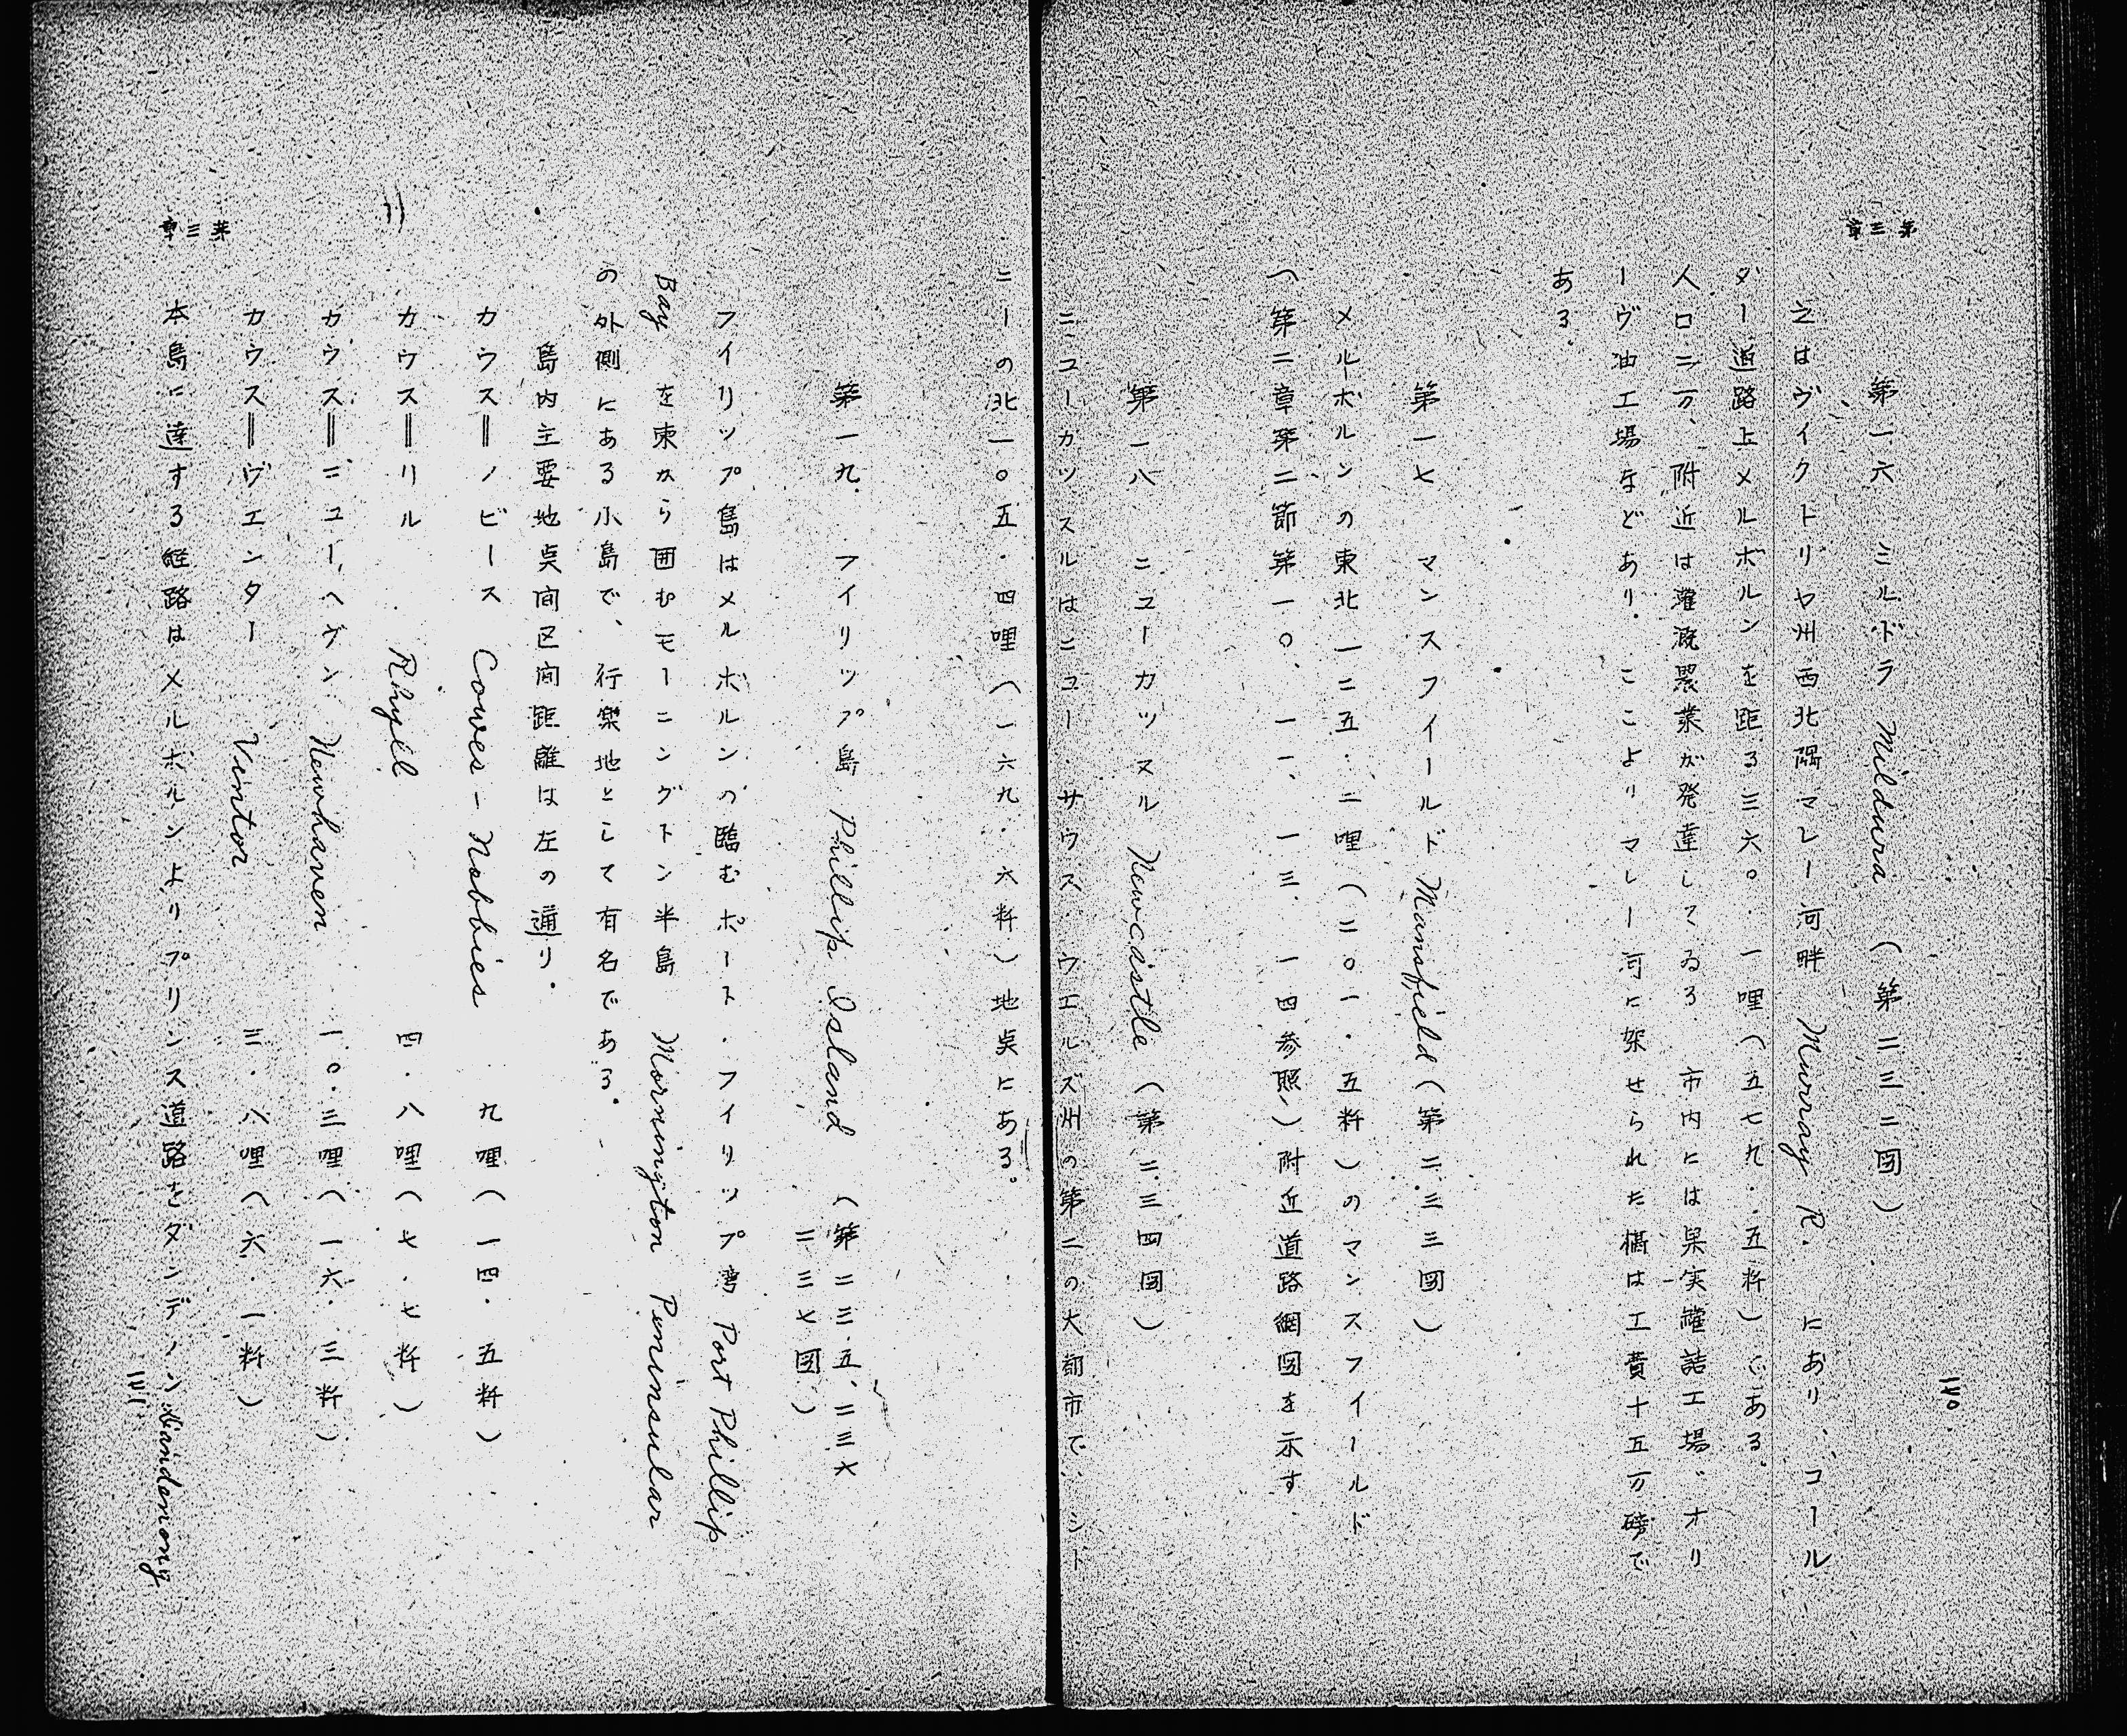 第三章
一四〇
第一六 ミルドラ Mildura （第二三二図）
之はヴイクトリヤ州西北隅マレー河畔 Murray R. にあり、コール
ダー道路上メルボルンを距る三六〇・一哩（五七九・五粁）である。
人口二万、附近は灌漑農業が発達してゐる。市内には果実罐詰工場、オリ
ーヴ油工場などあり。ここよりマレー河に架せられた橋は工費十五万磅で
ある。
第一七 マンスフイールド Mansfield（第二三三図）
メルボルンの東北一二五・二哩（二〇一・五粁）のマンスフイールド
（第二章第二節第一〇、一一、一三、一四参照）附近道路網図を示す
第一八 ニユーカツスル Newcastle（第二三四図）
ニユーカツスルはニユー・サウス・ウエルズ州の第二の大都市で、シド
ニーの北一〇五・四哩（一六九・六粁）地点にある。
第一九 フイリツプ島 Phillip Island （第二三五、二三六
二三七図）
フイリツプ島はメルボルンの臨むポート・フイリツプ湾 Port Phillip
Bay を東から囲むモーニングトン半島 Mornington Peninsular
の外側にある小島で、行楽地として有名である。
島内主要地点間区間距離は左の通り。
カウス＝ノビース Cowes - Nobbies 九哩（一四・五粁）
カウス＝リル Rhyll 四・八哩（七・七粁）
カウス＝ニユーヘヴン Newhaven 一〇・三哩（一六・三粁）
カウス＝ヴエンター Ventor 三・八哩（六・一粁）
本島に達する経路はメルボルンよりプリンス道路をダンデノン Dandenong
第三章
一四一